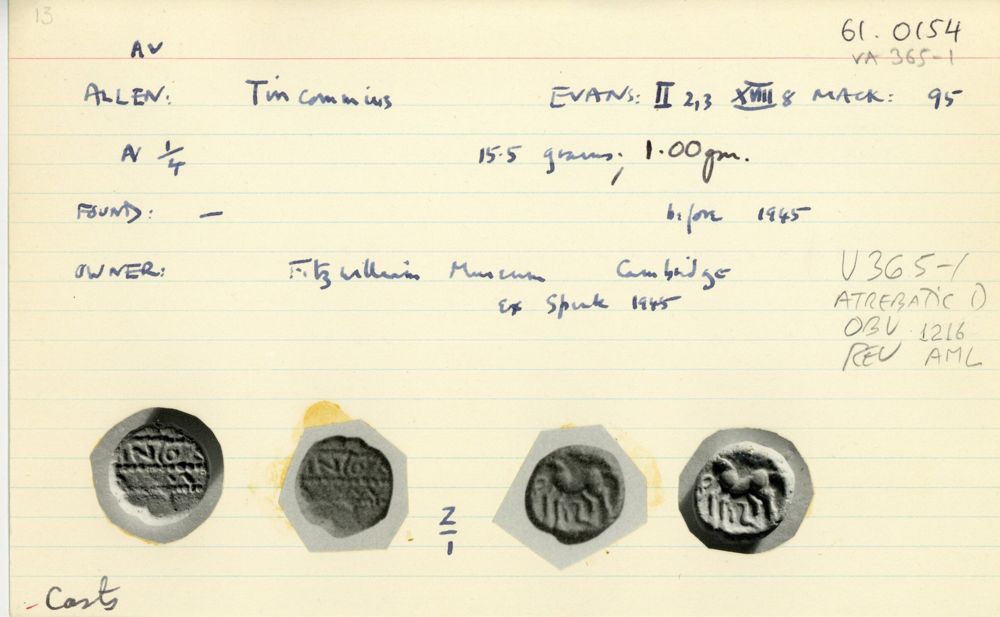 13
61.0154
AV
VA 365-1
ALLEN: Tincommius EVANS: II 2,3 XVIII 8 MACK: 95
AV 1/4 15.5 grains; 1.00gm.
FOUND: — before 1945
OWNER: Fitzwilliam Museum Cambridge
ex Spink 1945
V365-1
ATREBATIC D
OBV 1216
REV AML
2/1
- Casts